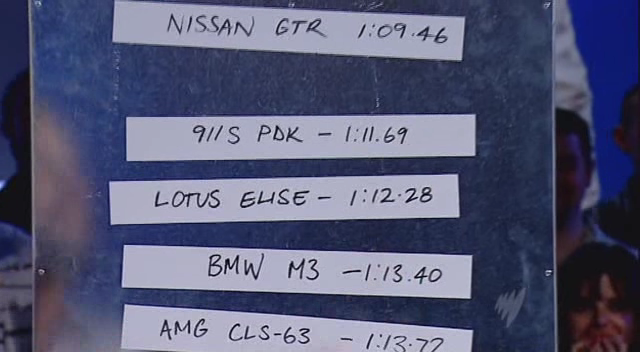 NISSAN GTR 1:09.46
911S PDK - 1:11.69
LOTUS ELISE - 1:12.28
BMW M3 - 1:13.40
AMG CLS-63 - 1:13.77